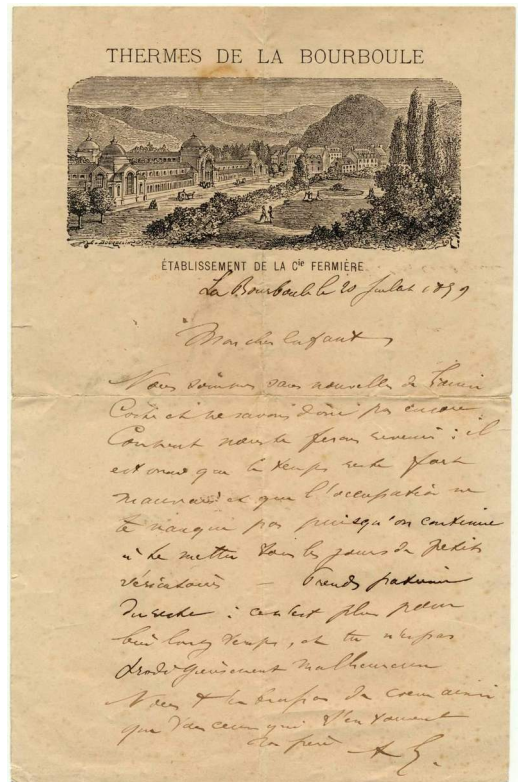 THERMES DE LA BOURBOULE
ÉTABLISSEMENT DE LA Cie FERMIÈRE
La Bourboule le 20 Juillet 1899
Mon cher Enfant,
Nous sommes sans nouvelles de
et ne savons donc pas encore
Comment nous te ferons revenir : il
est vrai que le temps reste fort
mauvais et que l'occupation ne
te manque pas puisqu'on continue
à te mettre tous les jours de petits
vésicatoires — Prends patience
du reste : ce n'est plus pour
bien longtemps, et tu n'es pas
prodigieusement malheureux
Nous t'embrassons de coeur ainsi
que ceux qui t'entourent
ton père